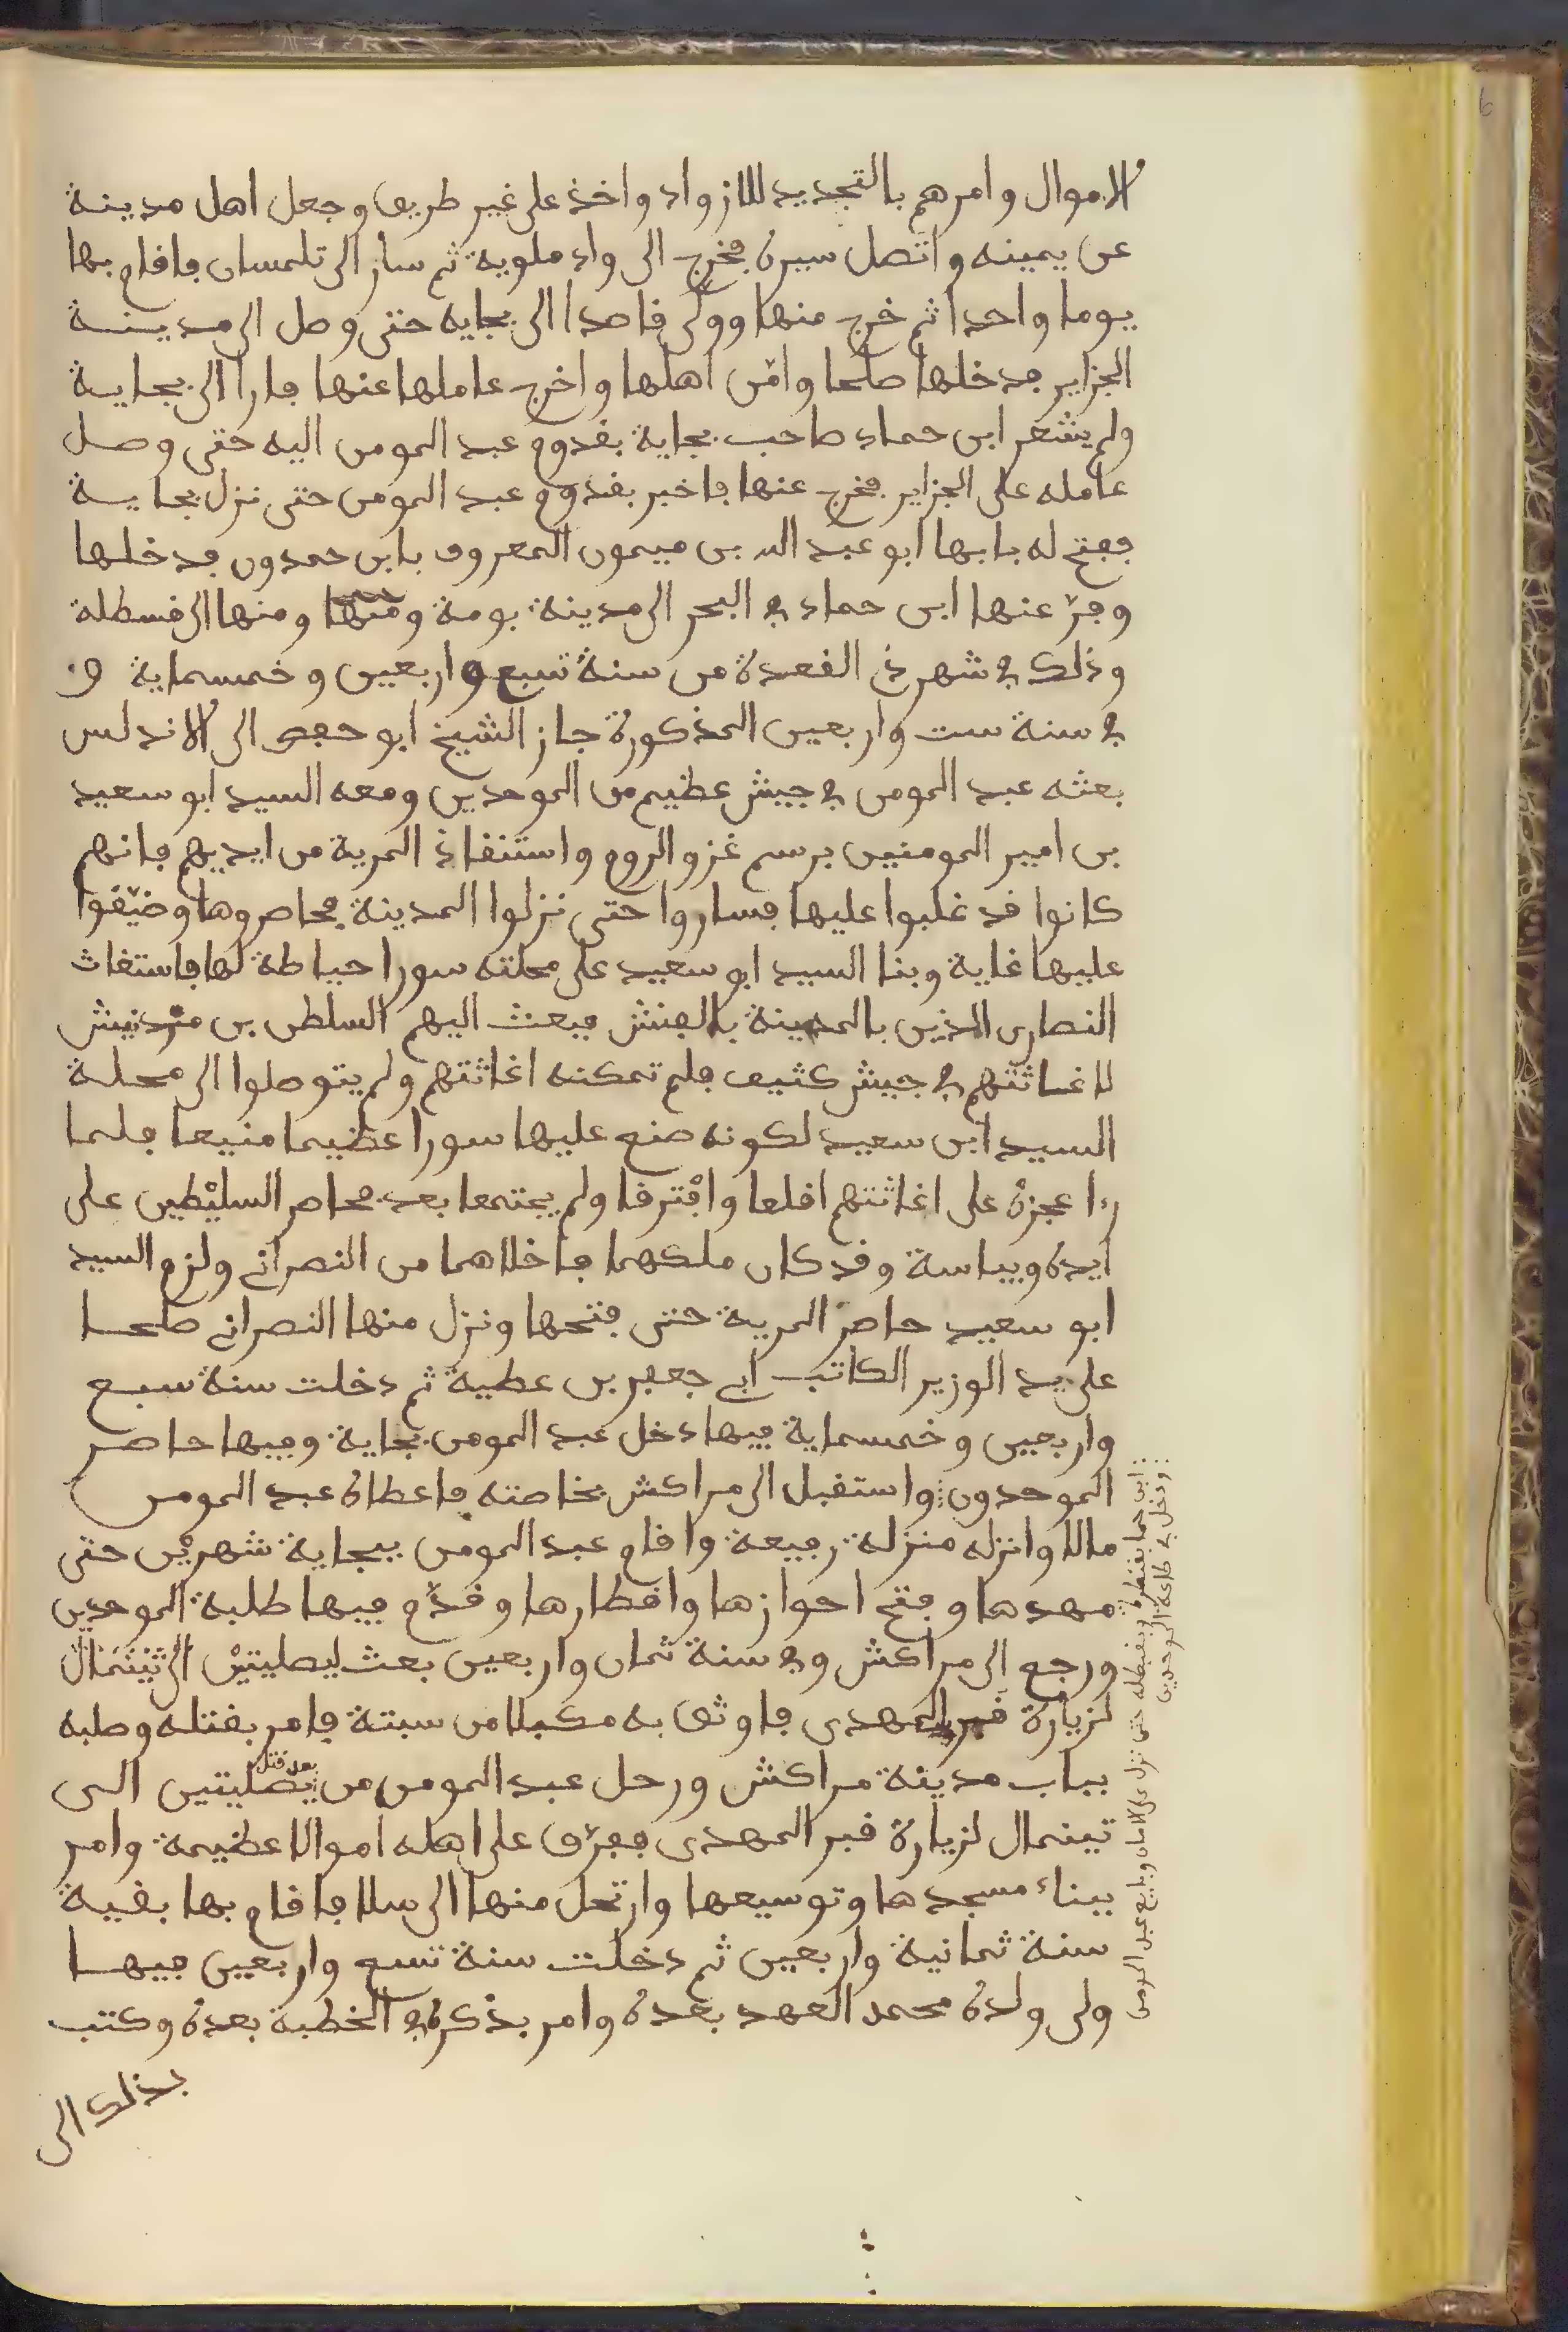 الاموال وامرهم بالتجديد للازواد واخذ على غير طريق وجعل اهل مدينة
عن يمينه واتصل سيره فخرج الى واد ملوية ثم سار الى تلمسان فاقام بها
يوما واحدا ثم خرج منها وولى قاصدا الى بجايه حتى وصل الى مدينة
الجزاير فدخلها صلحا وامّن اهلها واخرج عاملها عنها فارا الى بجاية
ولم يشعر ابن حماد صاحب بجاية بقدوم عبد المومن اليه حتى وصل
عامله على الجزاير فخرج عنها فاخبر بقدوم عبد المومن حتى نزل بجاية
ففتح له بابها ابو عبد الله بن ميمون المعروف بابن حمدون فدخلها
وفرّ عنها ابن حماد في البحر الى مدينة بومة ومنها ومنها الى قسطلة
وذلك في شهر ذي القعدة من سنة تسع واربعين وخمسماية و
في سنة ست واربعين المذكورة جاز الشيخ ابو حفص الى الاندلس
بعثه عبد المومن في جيش عظيم من الموحدين ومعه السيد ابو سعيد
بن امير المومنين برسم غزو الروم واستنقاذ المرية من ايديهم فانهم
كانوا قد غلبوا عليها فساروا حتى نزلوا المدينة فحاصروها وضيّقوا
عليها غاية وبنا السيد ابو سعيد على محلته سورا حياطة لها فاستغاث
النصارى الذين بالمدينة بالفنش فبعث اليهم السلطن بن مردنيش
لاغاثتهم في جيش كثيف فلم تمكنه اغاثتهم ولم يتوصلوا الى محلة
السيد ابن سعيد لكونه صنع عليها سورا عظيما منيعا فلما
را عجزه على اغاثتهم اقلعا وافترقا ولم يجتمعا بعد فحاصر السليطين على
ابدة وبياسة وقد كان ملكهما فاخلاهما من النصراني ولزم السيد
ابو سعيد حاصر المرية حتى فتحها ونزل منها النصراني صلحا
على يد الوزير الكاتب ابي جعفر بن عطية ثم دخلت سنة سبع
واربعين وخمسماية فيها دخل عبد المومن بجاية وفيها حاصر
الموحدون واستقبل الى مراكش بخاصته فاعطاه عبد المومن
مالا وانزله منزلة رفيعة واقام عبد المومن ببجاية شهرين حتى
مهدها وفتح احوازها واقطارها وقدّم فيها طلبة الموحدين
ورجع الى مراكش وفي سنة ثمان واربعين بعث ليصليتين الى تينمال
لزيارة قبر المهدى فاوثق به مكبلا من سبتة فامر بقتله وصلبه
بباب مدينة مراكش ورحل عبد المومن من بعد قتل يصليتين الى
تينمال لزيارة قبر المهدى ففرّق على اهله اموالا عظيمة وامر
ببناء مسجدها وتوسيعها وارتحل منها الى سلا فاقام بها بقية
سنة ثمانية واربعين ثم دخلت سنة تسع واربعين فيها
ولى ولده محمد العهد بعده وامر بذكره في الخطبة بعده وكتب
بذلك الى
ابن حماد حتى نزل على الامان وبايع عبد المومن
ودخل في طاعة الموحدين
6